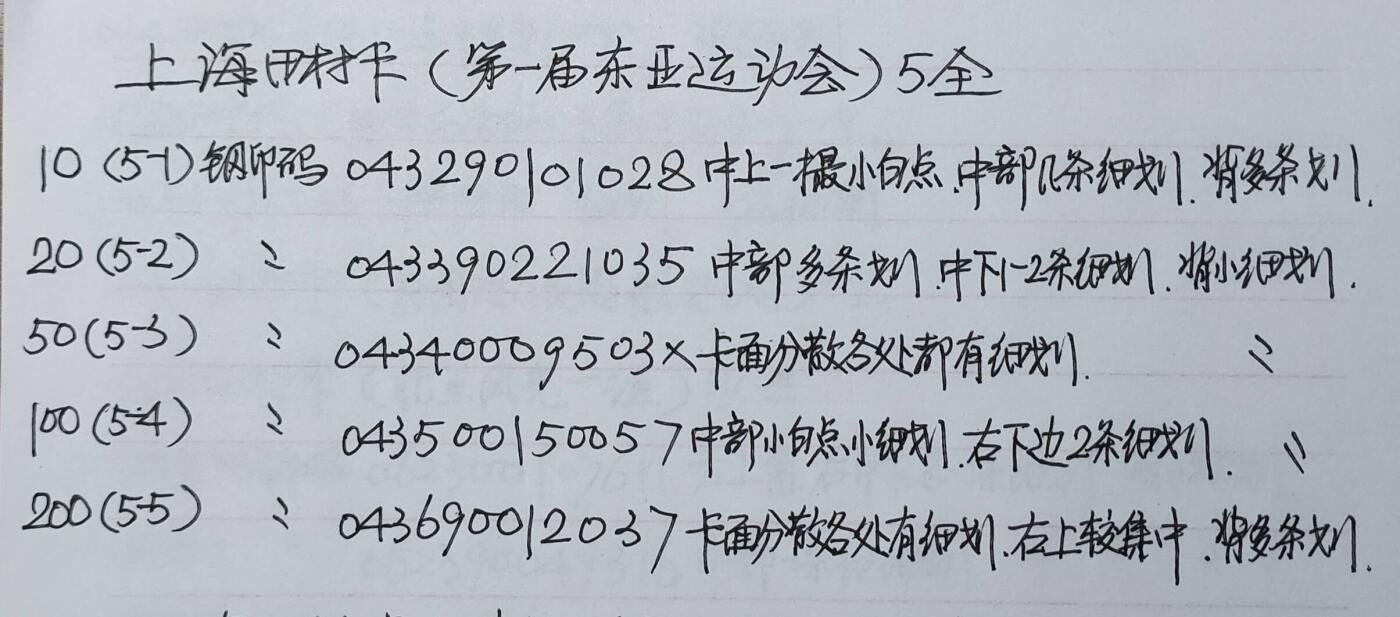 上海田村卡(第一届东亚运动会)5全
10(5-1)钢印码 043290101028中上一撮小白点.中部几条细划.背多条划.
20(5-2) 〃 043390221035中部多条划.中下1-2条细划.背小细划.
50(5-3) 〃 04340009503×卡面分散各处都有细划. 〃
100(5-4) 〃 043500150057中部小白点小细划.右下边2条细划. 〃
200(5-5) 〃 043690012037卡面分散各处有细划.右上较集中.背多条划.